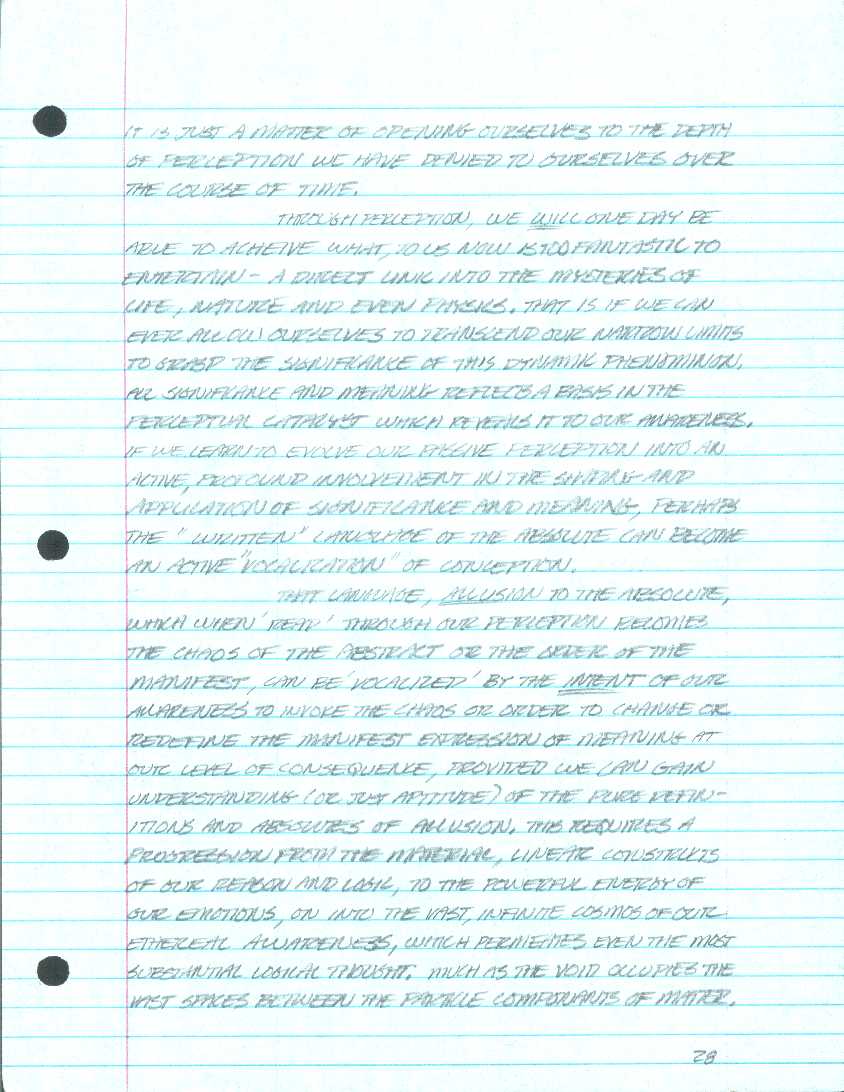 IT IS JUST A MATTER OF OPENING OURSELVES TO THE DEPTH
OF PERCEPTION WE HAVE DENIED TO OURSELVES OVER
THE COURSE OF TIME.
THROUGH PERCEPTION, WE WILL ONE DAY BE
ABLE TO ACHEIVE WHAT, TO US NOW IS TOO FANTASTIC TO
ENTERTAIN - A DIRECT LINK INTO THE MYSTERIES OF
LIFE, NATURE AND EVEN PHYSICS. THAT IS IF WE CAN
EVER ALLOW OURSELVES TO TRANSCEND OUR NARROW LIMITS
TO GRASP THE SIGNIFICANCE OF THIS DYNAMIC PHENOMINON.
ALL SIGNIFICANCE AND MEANING REFLECTS A BASIS IN THE
PERCEPTUAL CATALYST WHICH REVEALS IT TO OUR AWARENESS.
IF WE LEARN TO EVOLVE OUR PASSIVE PERCEPTION INTO AN
ACTIVE, PROFOUND INVOLVEMENT IN THE SHAPING AND
APPLICATION OF SIGNIFICANCE AND MEANING, PERHAPS
THE "WRITTEN" LANGUAGE OF THE ABSOLUTE CAN BECOME
AN ACTIVE "VOCALIZATION" OF CONCEPTION.
THAT LANGUAGE, ALLUSION TO THE ABSOLUTE,
WHICH WHEN 'READ' THROUGH OUR PERCEPTION BECOMES
THE CHAOS OF THE ABSTRACT OR THE ORDER OF THE
MANIFEST, CAN BE 'VOCALIZED' BY THE INTENT OF OUR
AWARENESS TO INVOKE THE CHAOS OR ORDER TO CHANGE OR
REDEFINE THE MANIFEST EXPRESSION OF MEANING AT
OUR LEVEL OF CONSEQUENCE, PROVIDED WE CAN GAIN
UNDERSTANDING (OR JUST APTITUDE) OF THE PURE DEFIN-
ITIONS AND ABSOLUTES OF ALLUSION. THIS REQUIRES A
PROGRESSION FROM THE MATERIAL, LINEAR CONSTRUCTS
OF OUR REASON AND LOGIC, TO THE POWERFUL ENERGY OF
OUR EMOTIONS, ON INTO THE VAST, INFINITE COSMOS OF OUR
ETHEREAL AWARENESS, WHICH PERMEATES EVEN THE MOST
SUBSTANTIAL LOGICAL THOUGHT. MUCH AS THE VOID OCCUPIES THE
VAST SPACES BETWEEN THE PARTICLE COMPONANTS OF MATTER.
28